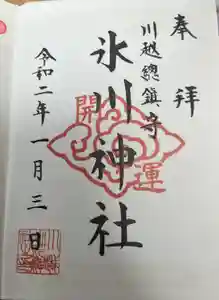 奉拝
川越總鎮守
氷川神社
開運
令和二年一月三日